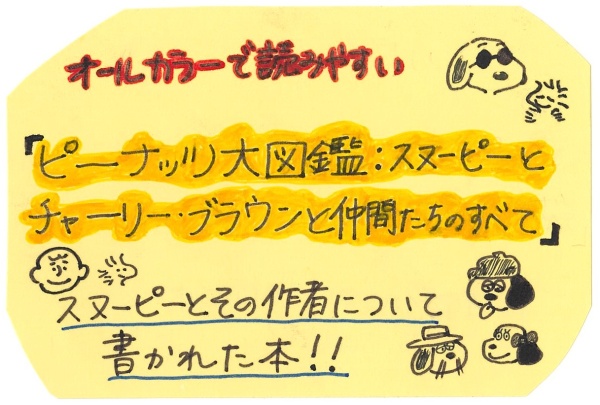 オールカラーで読みやすい
『ピーナッツ大図鑑:スヌーピーと
チャーリー・ブラウンと仲間たちのすべて』
スヌーピーとその作者について
書かれた本!!